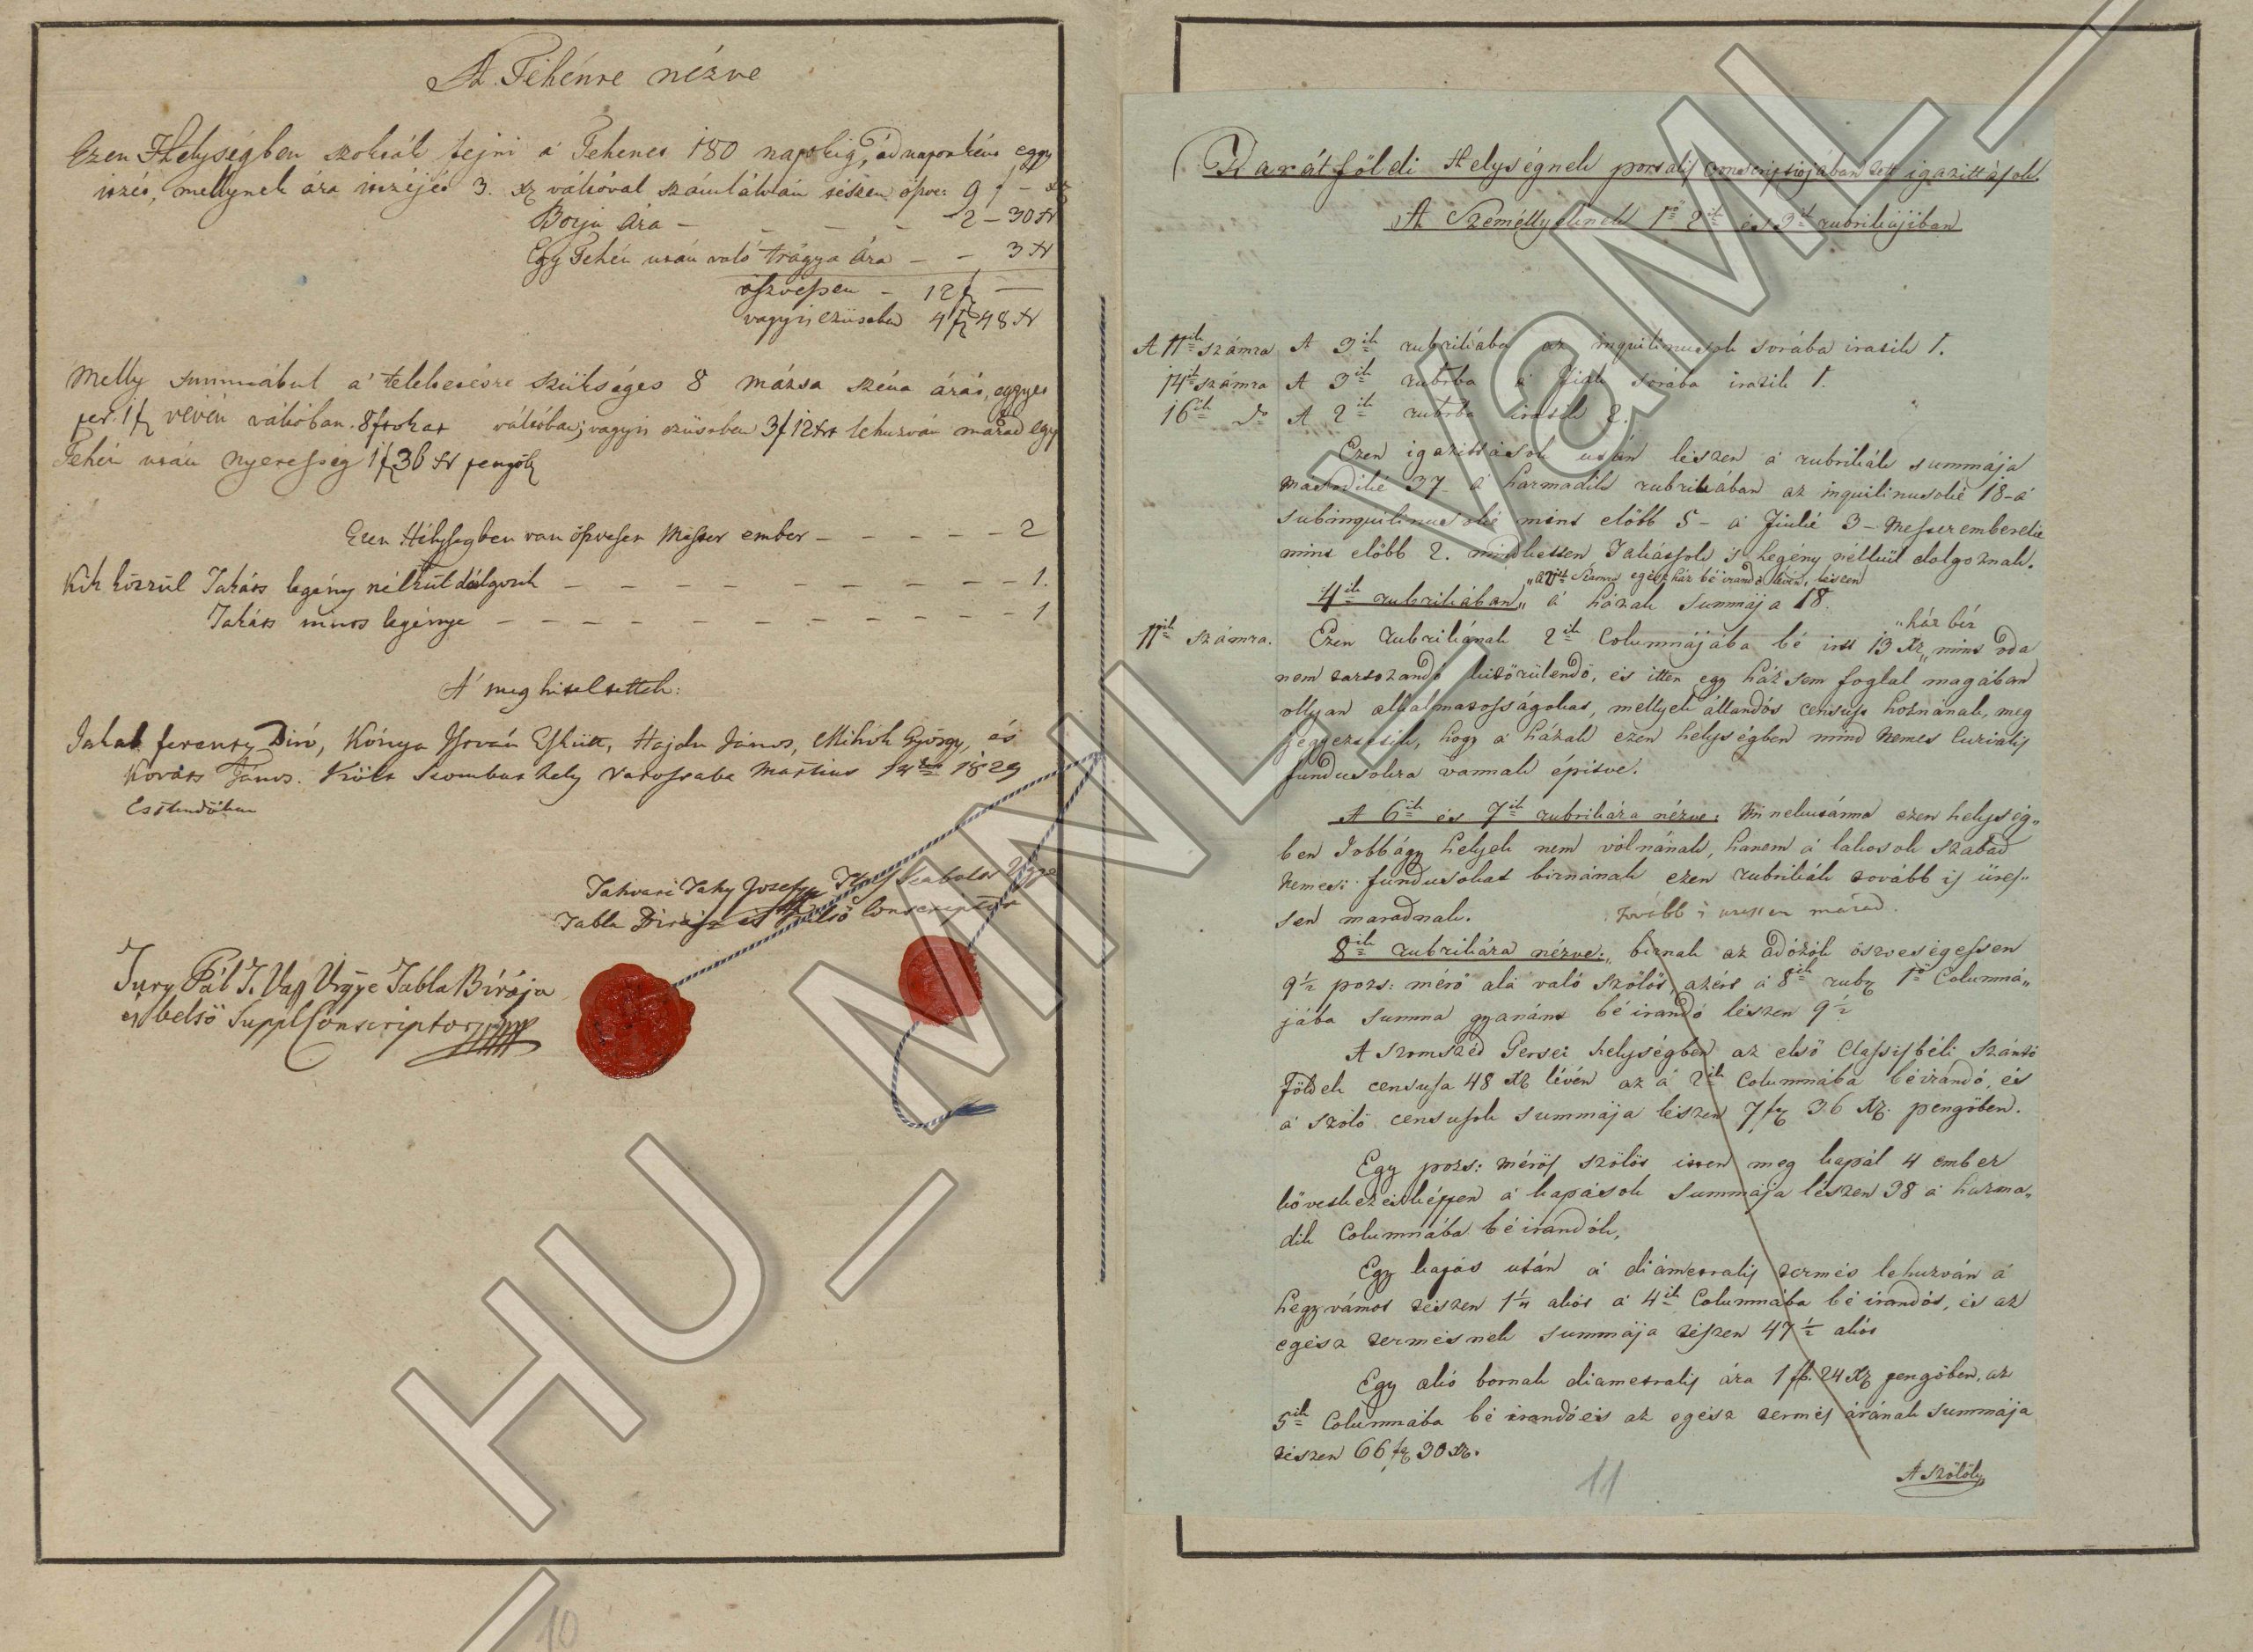 A Tehénre nézve
Ezen Helységben szokták fejni a' Tehenet 180 napokig, ád naponként eggy
itzét, mellynek ára itzéjét 3. xr váltóval számlálván tészen öszve: 9 f – xr
Borju Ára – – – – 2 – 30 xr
Egy Tehén után való trágya Ára – – 3 xr
öszvessen – 12 f –
vagyis ezüstben 4 f 48 xr
Melly summábul a' teleltetésre szükséges 8 mázsa széna árát, eggyet
per. 1 f vévén váltóban. 8 frtokat váltóban; vagyis ezüstben 3 f 12 xrt lehuzván marad egy
Tehén után nyeresség 1 f 36 xr pengő
Ezen Hélységben van öszvesen Mester ember – – – – – 2
Kik közzűl Takáts legény nélkűl dolgozik – – – – – – – – – 1.
Takáts nints legénye – – – – – – – – – – 1
A' meg hiteltettek:
Jakab ferentz Biró, Kónya István Eskütt, Hajdu János, Mihók György, és
Kováts János. Költ Szombathely Várossába Martius 14 1829
Esztendőben
Takvari Taky Jozsef Szabolcs Vgye
Tabla Birája és külső Conscriptor
Jury Pál T. Vas Vrgye Tabla Birája
es belső Suppl Conscriptor
Barátföldi Helységnek portalis conscriptiojában tett igazittások.
A Személlyeknek 1ő 2ik és 3ik rubrikájiban
A 11ik számra A 3ik rubrikába az inquilinusok sorába iratik 1.
14ik számra A 3ik rubrba a Fiak sorába iratik 1.
16ik do A 2ik rubrba iratik 2.
Ezen igazittások után lészen a' rubrikák summája
masodiké 37 a' harmadik rubrikában az inquilinusoké 18 – a'
subinquilinusoké mint előbb 5 – a' Fiúké 3 – Mesteremberek
mint előbb 2. mindketten Takátsok 's legény nélkűl dolgoznak.
egész ház bé irandó lévén, lészen
4ik rubrikában „ a' házak summája 18.
„ház bér
11ik számra. Ezen rubrikának 2ik Columnájába bé irtt 13 xr „ mint oda
nem tartozandó kitörűlendő, és itten egy ház sem foglal magában
ollyan alkalmatosságokat, mellyek állandós census hoznának, meg
jegyeztetik, hogy a' házak ezen helységben mind Nemes Curialis
fundusokra vannak épitve.
A 6ik és 7ik rubrikára nézve: Minekutánna ezen helység„
ben Jobbágy helyek nem vólnának, hanem a' lakosok szabad
Nemesi fundusokat birnának ezen rubrikák tovább is üres„
sen maradnak. tovább is üressen marad.
8ik rubrikára nézve: „ birnak az adózók öszveségessen
9½ pozs: mérő alá való szölőt, azért a' 8ik rubr 1ő Columná„
jába summa gyanánt bé irandó lészen 9½
A szomszéd Gersei helységben az első Classisbéli szántó
földek censusa 48 xr lévén az a' 2ik Columnába béirandó, és
a' szőlő censusok summája lészen 7 f 36 xr. pengőben.
Egy pozs: mérős szölőt itten meg kapál 4 ember
következésképpen a' kapások summája lészen 38 a' harma„
dik Columnába bé irandók,
Egy kapás után a' diametralis termés lehuzván a'
hegyvámot tészen 1¼ akót a' 4ik Columnába bé irandót, és az
egész termésnek summája tészen 47½ akót
Egy akó bornak diametralis ára 1 f. 24 xr pengőben, az
5ik Columnába bé irandó és az egész termés árának summája
tészen 66 f 30 xr.
A szölök
10
11
HU_MNL_VaML_